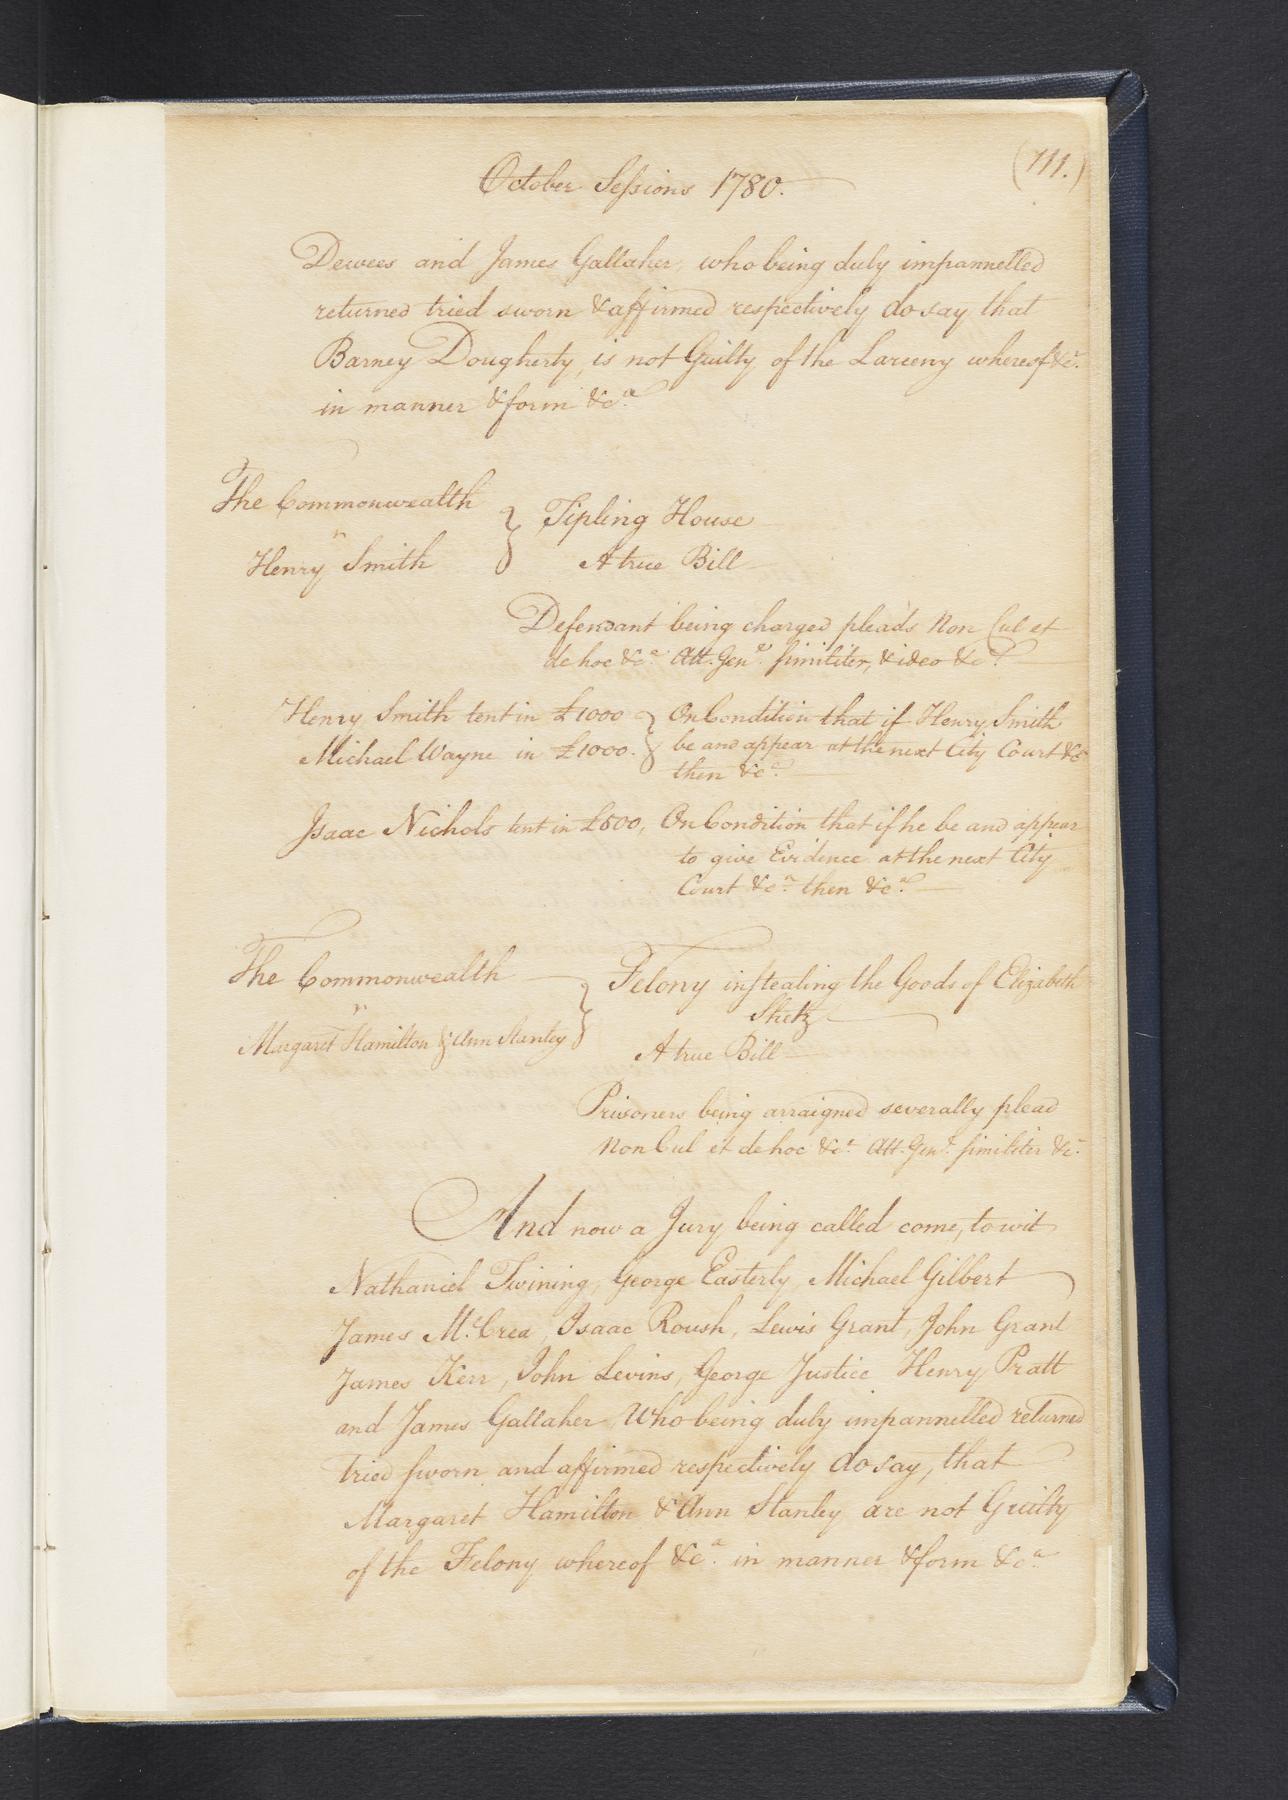 (111.)
October Sessions 1780.
Dewees and James Gallaher, who being duly impannelled
returned tried sworn & affirmed respectively do say that
Barney Dougherty, is not Guilty of the Larceny whereof &ca.
in manner & form &ca.
The Commonwealth
vs
Henry Smith
} Tipling House
A true Bill
Defendant being charged pleads Non Cul et
de hoc &ca. Att. Genl. similiter, & ideo &ca.
Henry Smith tent in £1000 } On Condition that if Henry Smith
Michael Wayne in £1000. } be and appear at the next City Court &c
then &ca.
Isaac Nichols tent in £500, On Condition that if he be and appear
to give Evidence at the next City
Court &ca. then &ca.
The Commonwealth
vs
Margaret Hamilton & Ann Stanley
} Felony in stealing the Goods of Elizabeth
Shetz
A true Bill
Prisoners being arraigned severally plead
Non Cul et de hoc &ca. Att. Genl. similiter &c.
And now a Jury being called come, to wit
Nathaniel Twining, George Easterly, Michael Gilbert
James McCrea, Isaac Roush, Lewis Grant, John Grant
James Kerr, John Levins, George Justice Henry Pratt
and James Gallaher Who being duly impannelled returned
tried sworn and affirmed respectively do say, that
Margaret Hamilton & Ann Stanley are not Guilty
of the Felony whereof &ca. in manner & form &ca.